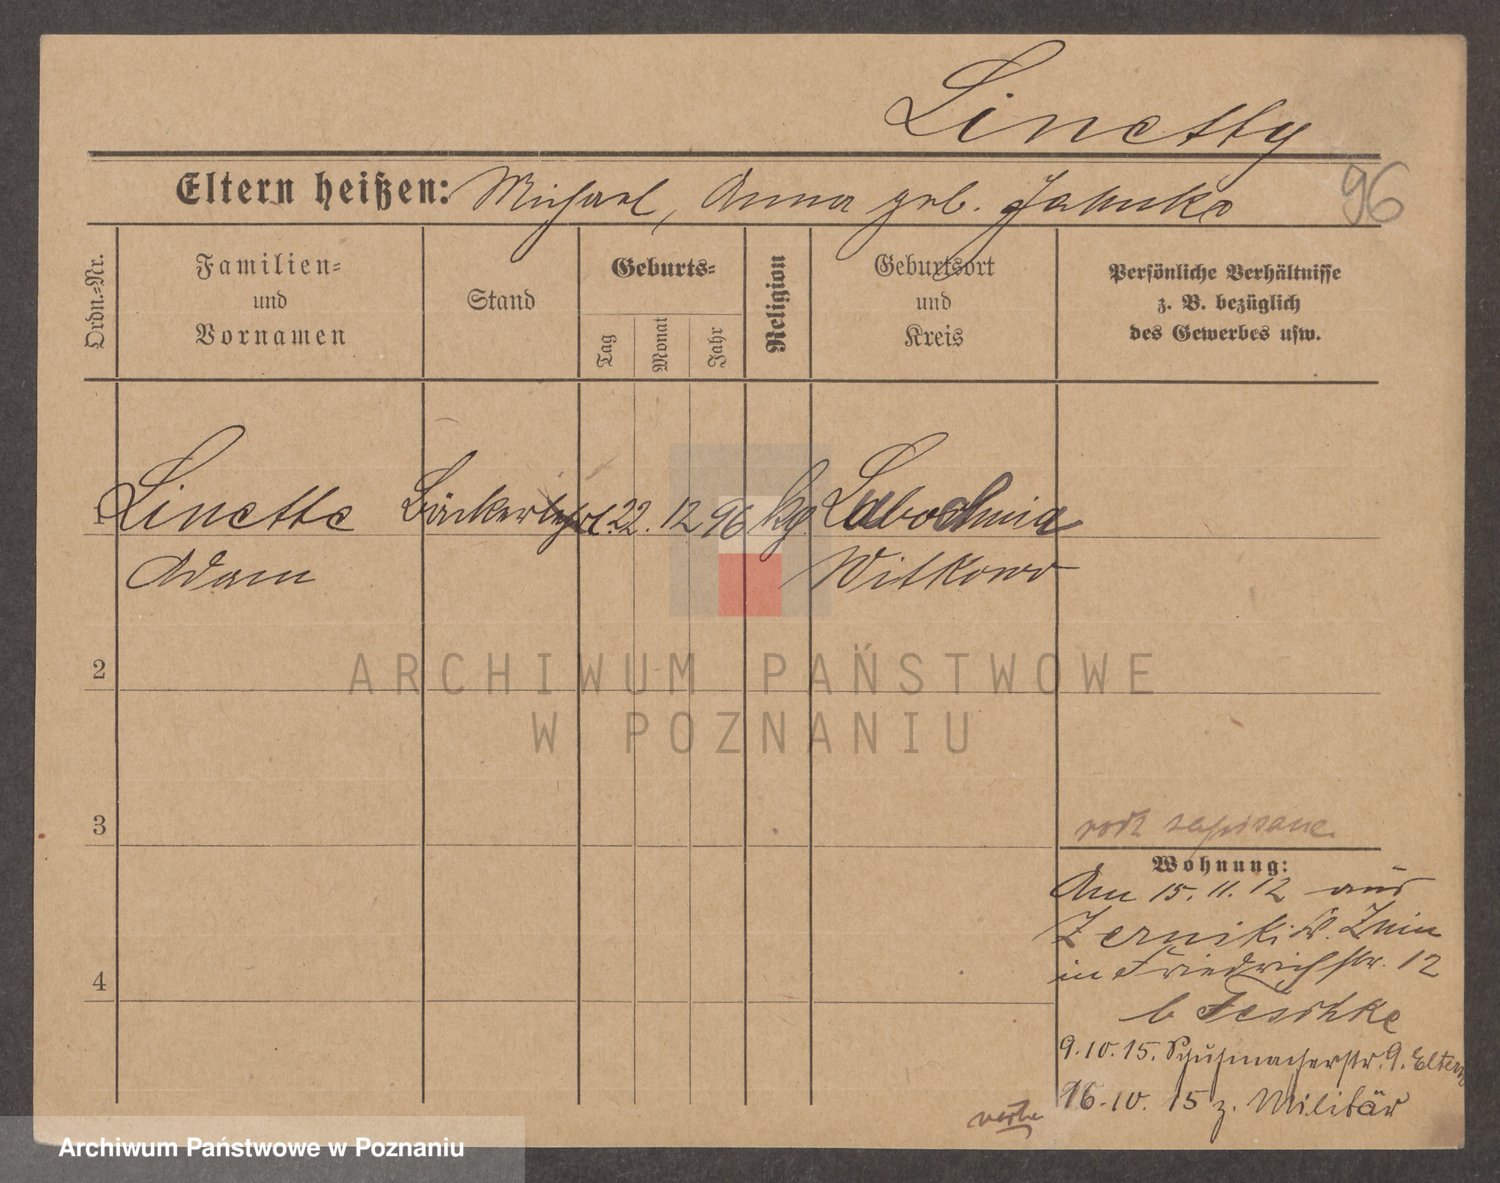 Linetty
Eltern heißen: Michael, Anna geb. Jahnke
96
Ordn.=Nr.
Familien=
und
Vornamen
Stand
Geburts=
Tag
Monat
Jahr
Religion
Geburtsort
und
Kreis
Persönliche Verhältnisse
z. B. bezüglich
des Gewerbes usw.
1 Linette Bäckerlehrl. 22. 12 96 kg. Labochnia
Adam Witkowo
ARCHIWUM PAŃSTWOWE
W POZNANIU
2
3
4
rodz zapisane
Wohnung:
Am 15. 11. 12 aus
Zerniki Znin
in Friedrichstr. 12
b Jeschke
9.10.15. Schuhmacherstr. 9. Eltern
16.10.15 z. Militär
Archiwum Państwowe w Poznaniu